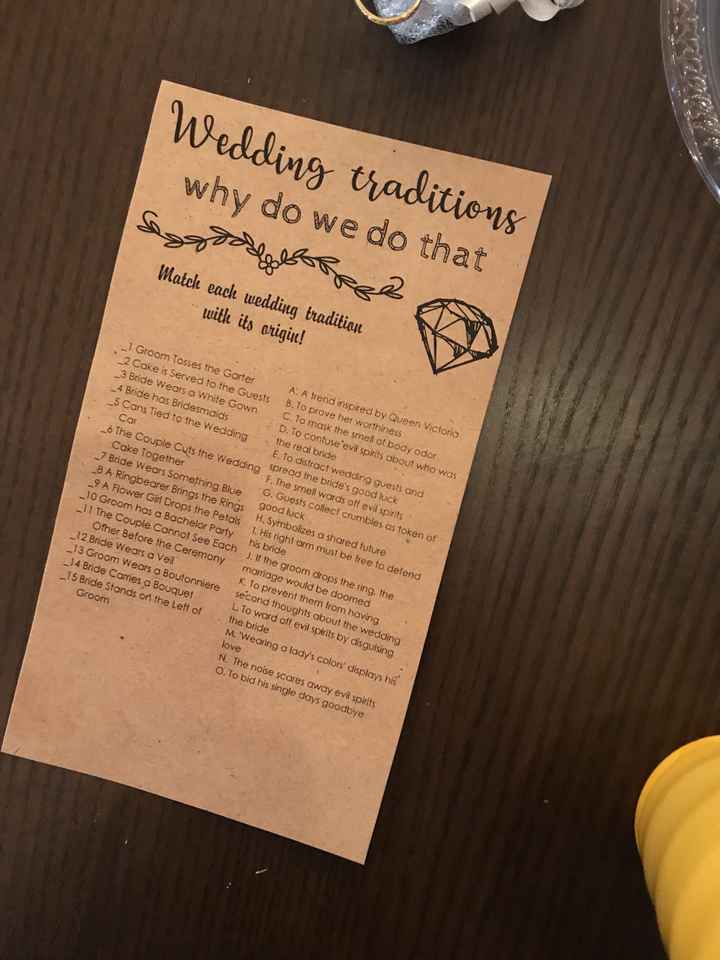 Wedding traditions
why do we do that
Match each wedding tradition
with its origin!
_1 Groom Tosses the Garter
_2 Cake is Served to the Guests
_3 Bride Wears a White Gown
_4 Bride has Bridesmaids
_5 Cans Tied to the Wedding
Car
_6 The Couple Cuts the Wedding
Cake Together
_7 Bride Wears Something Blue
_8 A Ringbearer Brings the Rings
_9 A Flower Girl Drops the Petals
_10 Groom has a Bachelor Party
_11 The Couple Cannot See Each
Other Before the Ceremony
_12 Bride Wears a Veil
_13 Groom Wears a Boutonniere
_14 Bride Carries a Bouquet
_15 Bride Stands on the Left of
Groom
A. A trend inspired by Queen Victoria
B. To prove her worthiness
C. To mask the smell of body odor
D. To confuse evil spirits about who was
the real bride
E. To distract wedding guests and
spread the bride's good luck
F. The smell wards off evil spirits
G. Guests collect crumbles as token of
good luck
H. Symbolizes a shared future
I. His right arm must be free to defend
his bride
J. If the groom drops the ring, the
marriage would be doomed
K. To prevent them from having
second thoughts about the wedding
L. To ward off evil spirits by disguising
the bride
M. 'Wearing a lady's colors' displays his
love
N. The noise scares away evil spirits
O. To bid his single days goodbye